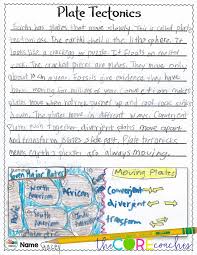 Plate Tectonics
Earth has plates that move slowly. This is called plate
tectonics. The earth shell is the lithosphere. It
looks like a cracked up puzzle. It floats on melted
rock. The cracked pieces are plates. They move only
about inch a year. Fossils give evidence they have
been moving for millions of years. Convection makes
plates move when hot rock pushes up and cool rock sinks
down. The plates move in different ways. Convergent
plates push together, divergent plates move apart
and transform plates slide past. Plate tectonics
means Earth's plates are always moving.
Major Plates
North American
African
South American
Moving Plates
convergent
divergent
transform
Name
the CORE coaches